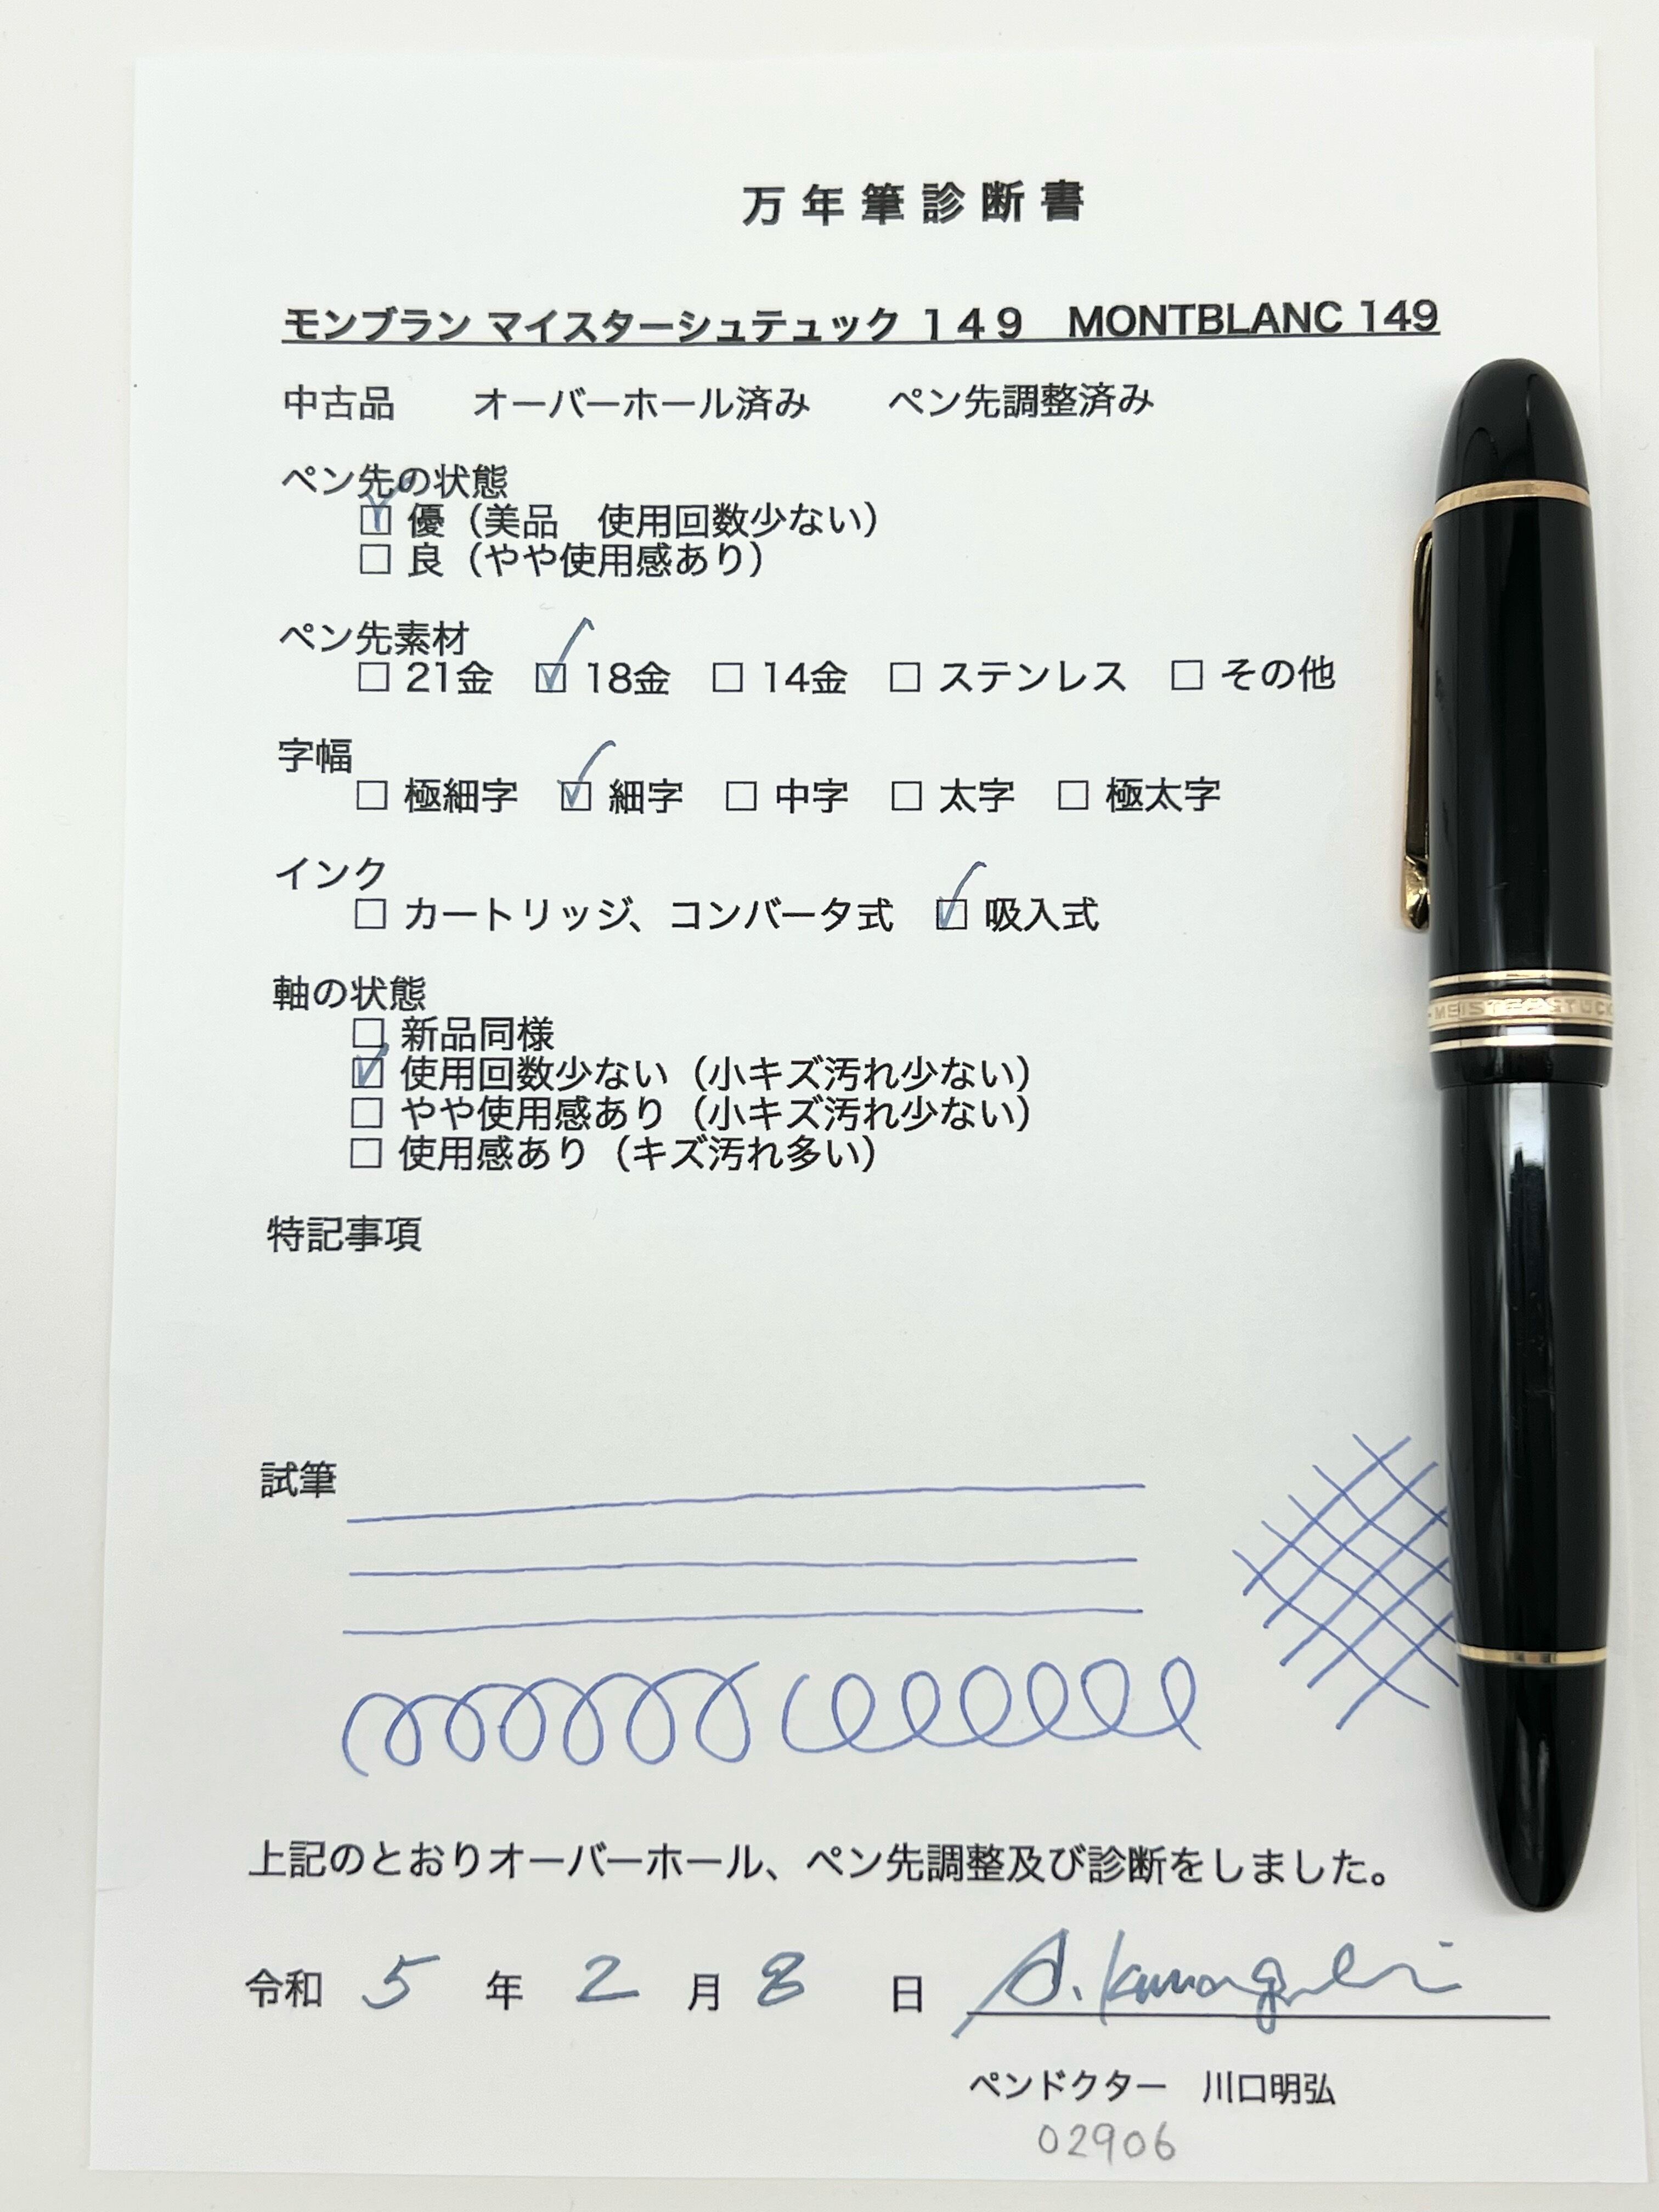 万年筆診断書
モンブラン マイスターシュテュック 149　MONTBLANC 149
中古品　オーバーホール済み　ペン先調整済み
ペン先の状態
☑ 優（美品　使用回数少ない）
□ 良（やや使用感あり）
ペン先素材
□ 21金 ☑ 18金 □ 14金 □ ステンレス □ その他
字幅
□ 極細字 ☑ 細字 □ 中字 □ 太字 □ 極太字
インク
□ カートリッジ、コンバータ式 ☑ 吸入式
軸の状態
□ 新品同様
☑ 使用回数少ない（小キズ汚れ少ない）
□ やや使用感あり（小キズ汚れ少ない）
□ 使用感あり（キズ汚れ多い）
特記事項
試筆
上記のとおりオーバーホール、ペン先調整及び診断をしました。
令和 5 年 2 月 8 日 A. Kawaguchi
ペンドクター　川口明弘
02906
MEISTERSTÜCK